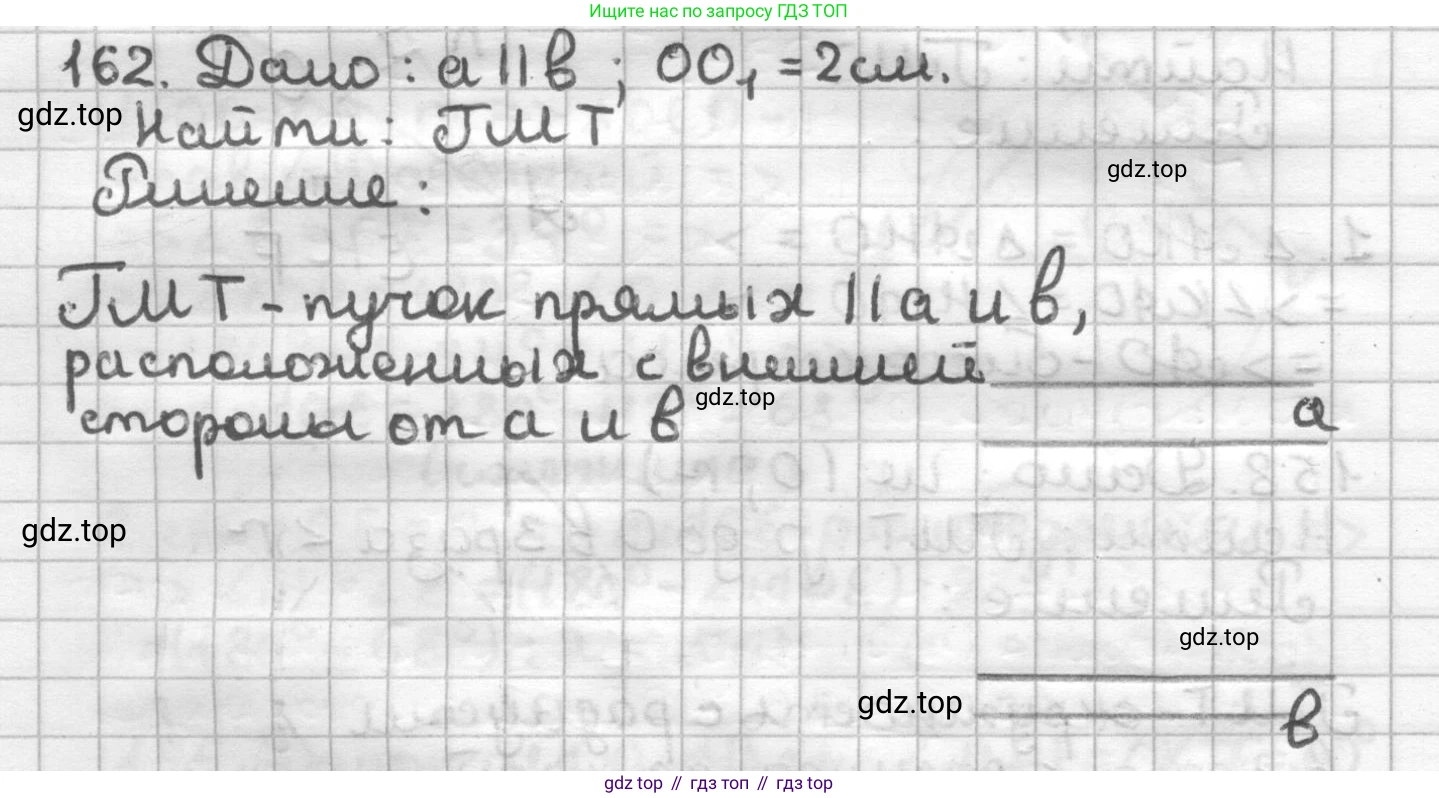 Ищите нас по запросу ГДЗ ТОП
162. Дано: a || b ; OO₁ = 2 см.
gdz.top
Найти: ГМТ
gdz.top
Решение:
ГМТ - пучок прямых || a и b,
расположенных с внешней
gdz.top
a
стороны от a и b
gdz.top
gdz.top
gdz.top
b
gdz top // гдз топ // гдз top